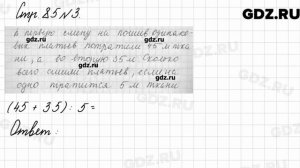 GDZ.RU
Стр. 85 N 3.
В первую смену на пошив одинако-
вых платьев потратили 45 м тка
ни, а во вторую 35 м. Сколько
всего сшили платьев, если на
одно тратится 5 м ткани
(45 + 35) : 5 =
Ответ :
GDZ.RU